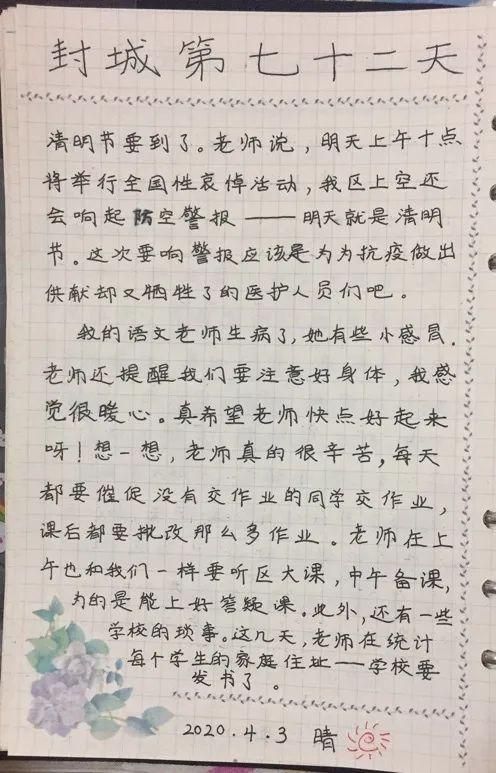 封城第七十二天
清明节要到了。老师说，明天上午十点
将举行全国性哀悼活动，我区上空还
会响起防空警报——明天就是清明
节。这次要响警报应该是为为抗疫做出
供献却又牺牲了的医护人员们吧。
我的语文老师生病了，她有些小感冒.
老师还提醒我们要注意好身体，我感
觉很暖心。真希望老师快点好起来
呀！想一想，老师真的很辛苦，每天
都要催促没有交作业的同学交作业，
课后都要批改那么多作业。老师在上
午也和我们一样要听区大课，中午备课，
为的是能上好答疑课。此外，还有一些
学校的琐事。这几天，老师在统计
每个学生的家庭住址——学校要
发书了。
2020.4.3 晴